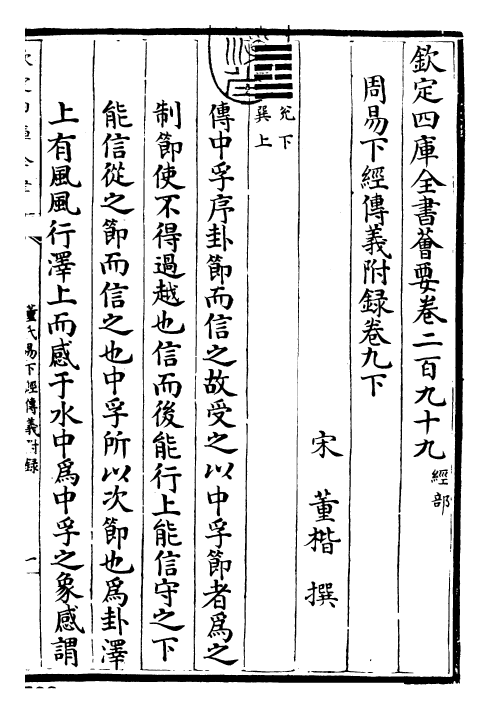 欽定四庫全書薈要卷二百九十九 經部
周易下經傳義附録卷九下
宋 董楷 撰
兌下
巽上
傳中孚序卦節而信之故受之以中孚節者為之
制節使不得過越也信而後能行上能信守之下
能信從之節而信之也中孚所以次節也為卦澤
上有風風行澤上而感于水中為中孚之象感謂
董氏易下經傳義附録
一